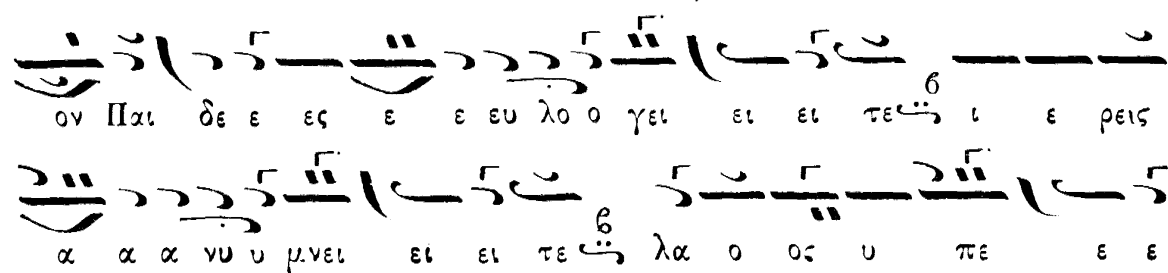 ον Παι δε ε ες ε ε ευ λο ο γει ει ει τε β ι ε ρεις
α α α νυ υ μνει ει ει τε β λα ο ος υ πε ε ε